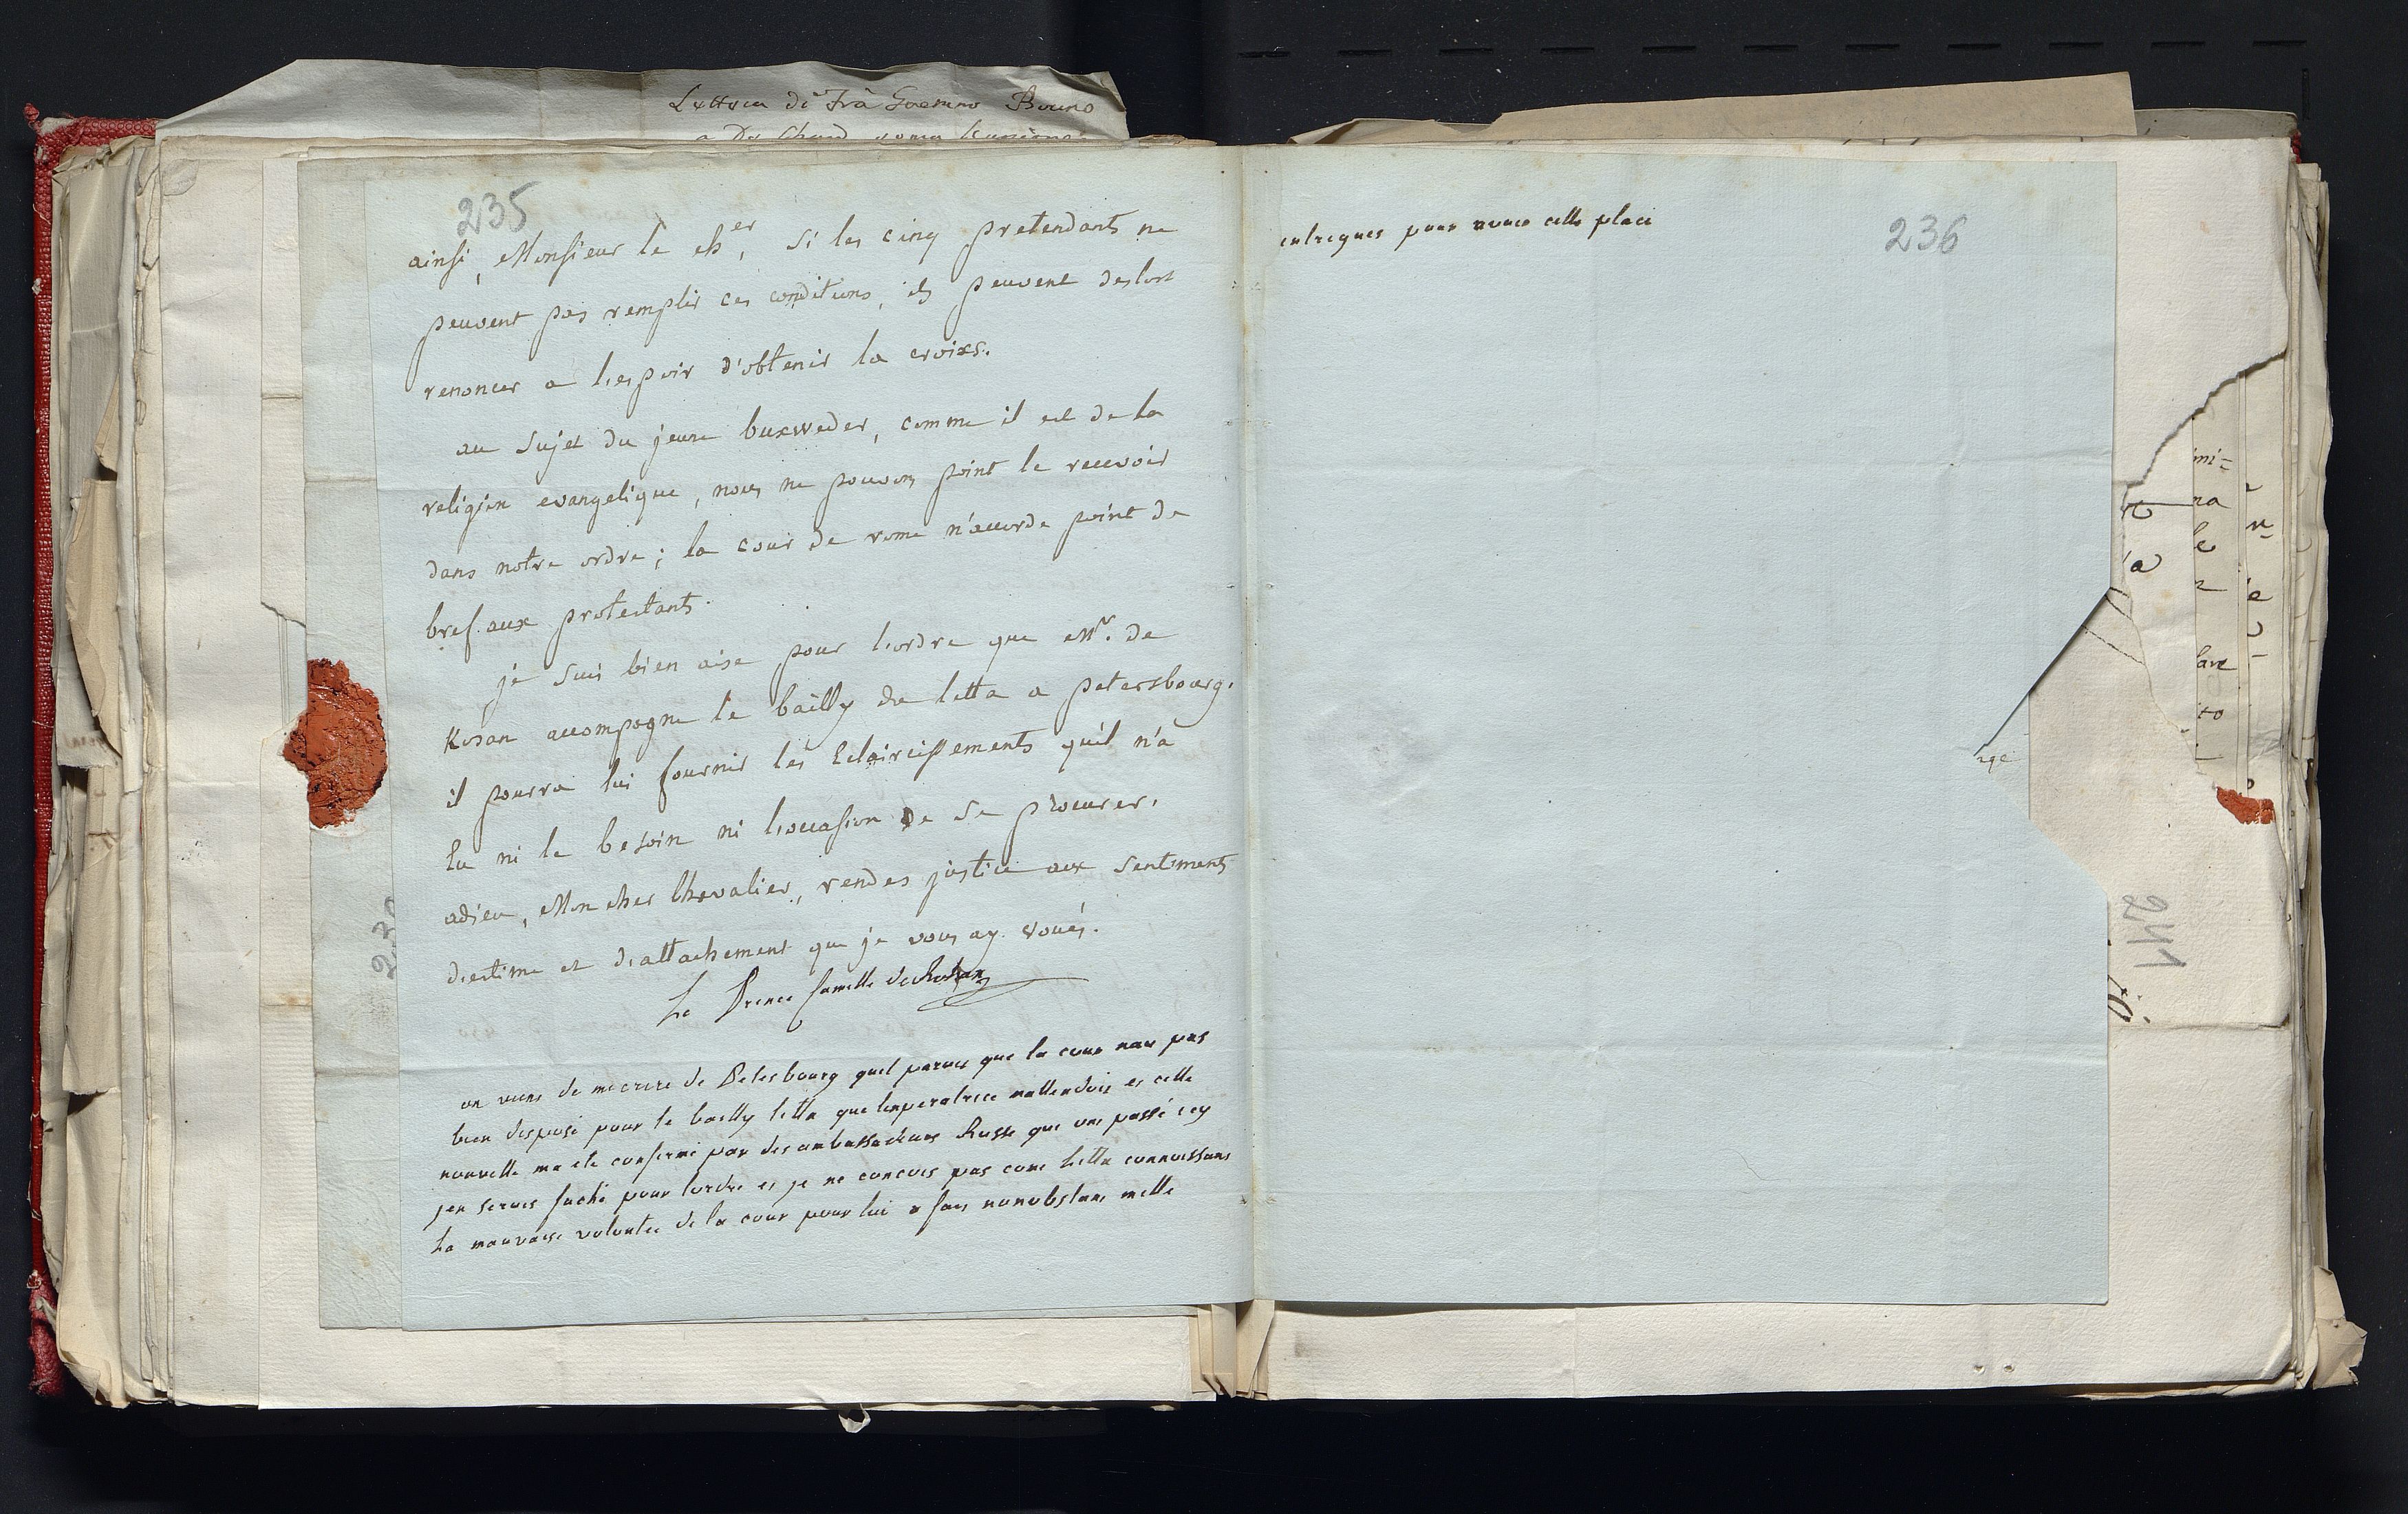 Lettera di Frà
235
ainsi, Monsieur le ch.er, si les cinq pretendants ne
peuvent pas remplir ces conditions, ils peuvent deslors
renoncer a l'espoir d'obtenir la croixs.
au sujet du jeune buxweder, comme il est de la
religion evangelique, nous ne pouvons point le recevoir
dans notre ordre; la cour de rome n'accorde point de
bref aux protestants.
je suis bien aise pour l'ordre que Mr. de
accompagne le bailly de litta a petersbourg.
il pourra lui fournir les Eclaircissements qu'il n'a
Eu ni le besoin ni l'occasion de se procurer.
adieu, Mon cher Chevalier, rendes justice aux sentiments
d'estime et d'attachement que je vous ay voués.
Le Prince Camille de Rohan
on vient de mecrire de Petesbourg quil parois que la cour nais pas
bien disposé pour le bailly litta que linperatrice mattendois et cette
nouvelle ma ete confirmé par des ambassadeurs Russe que ons passé icy
jen serois faché pour lordre et je ne concois pas come Litta connoissans
La mauvaise volontee de la cour pour lui a fais nonobstans mille
intregues pour avoir cette place
236
230
241
mi=
ra
le